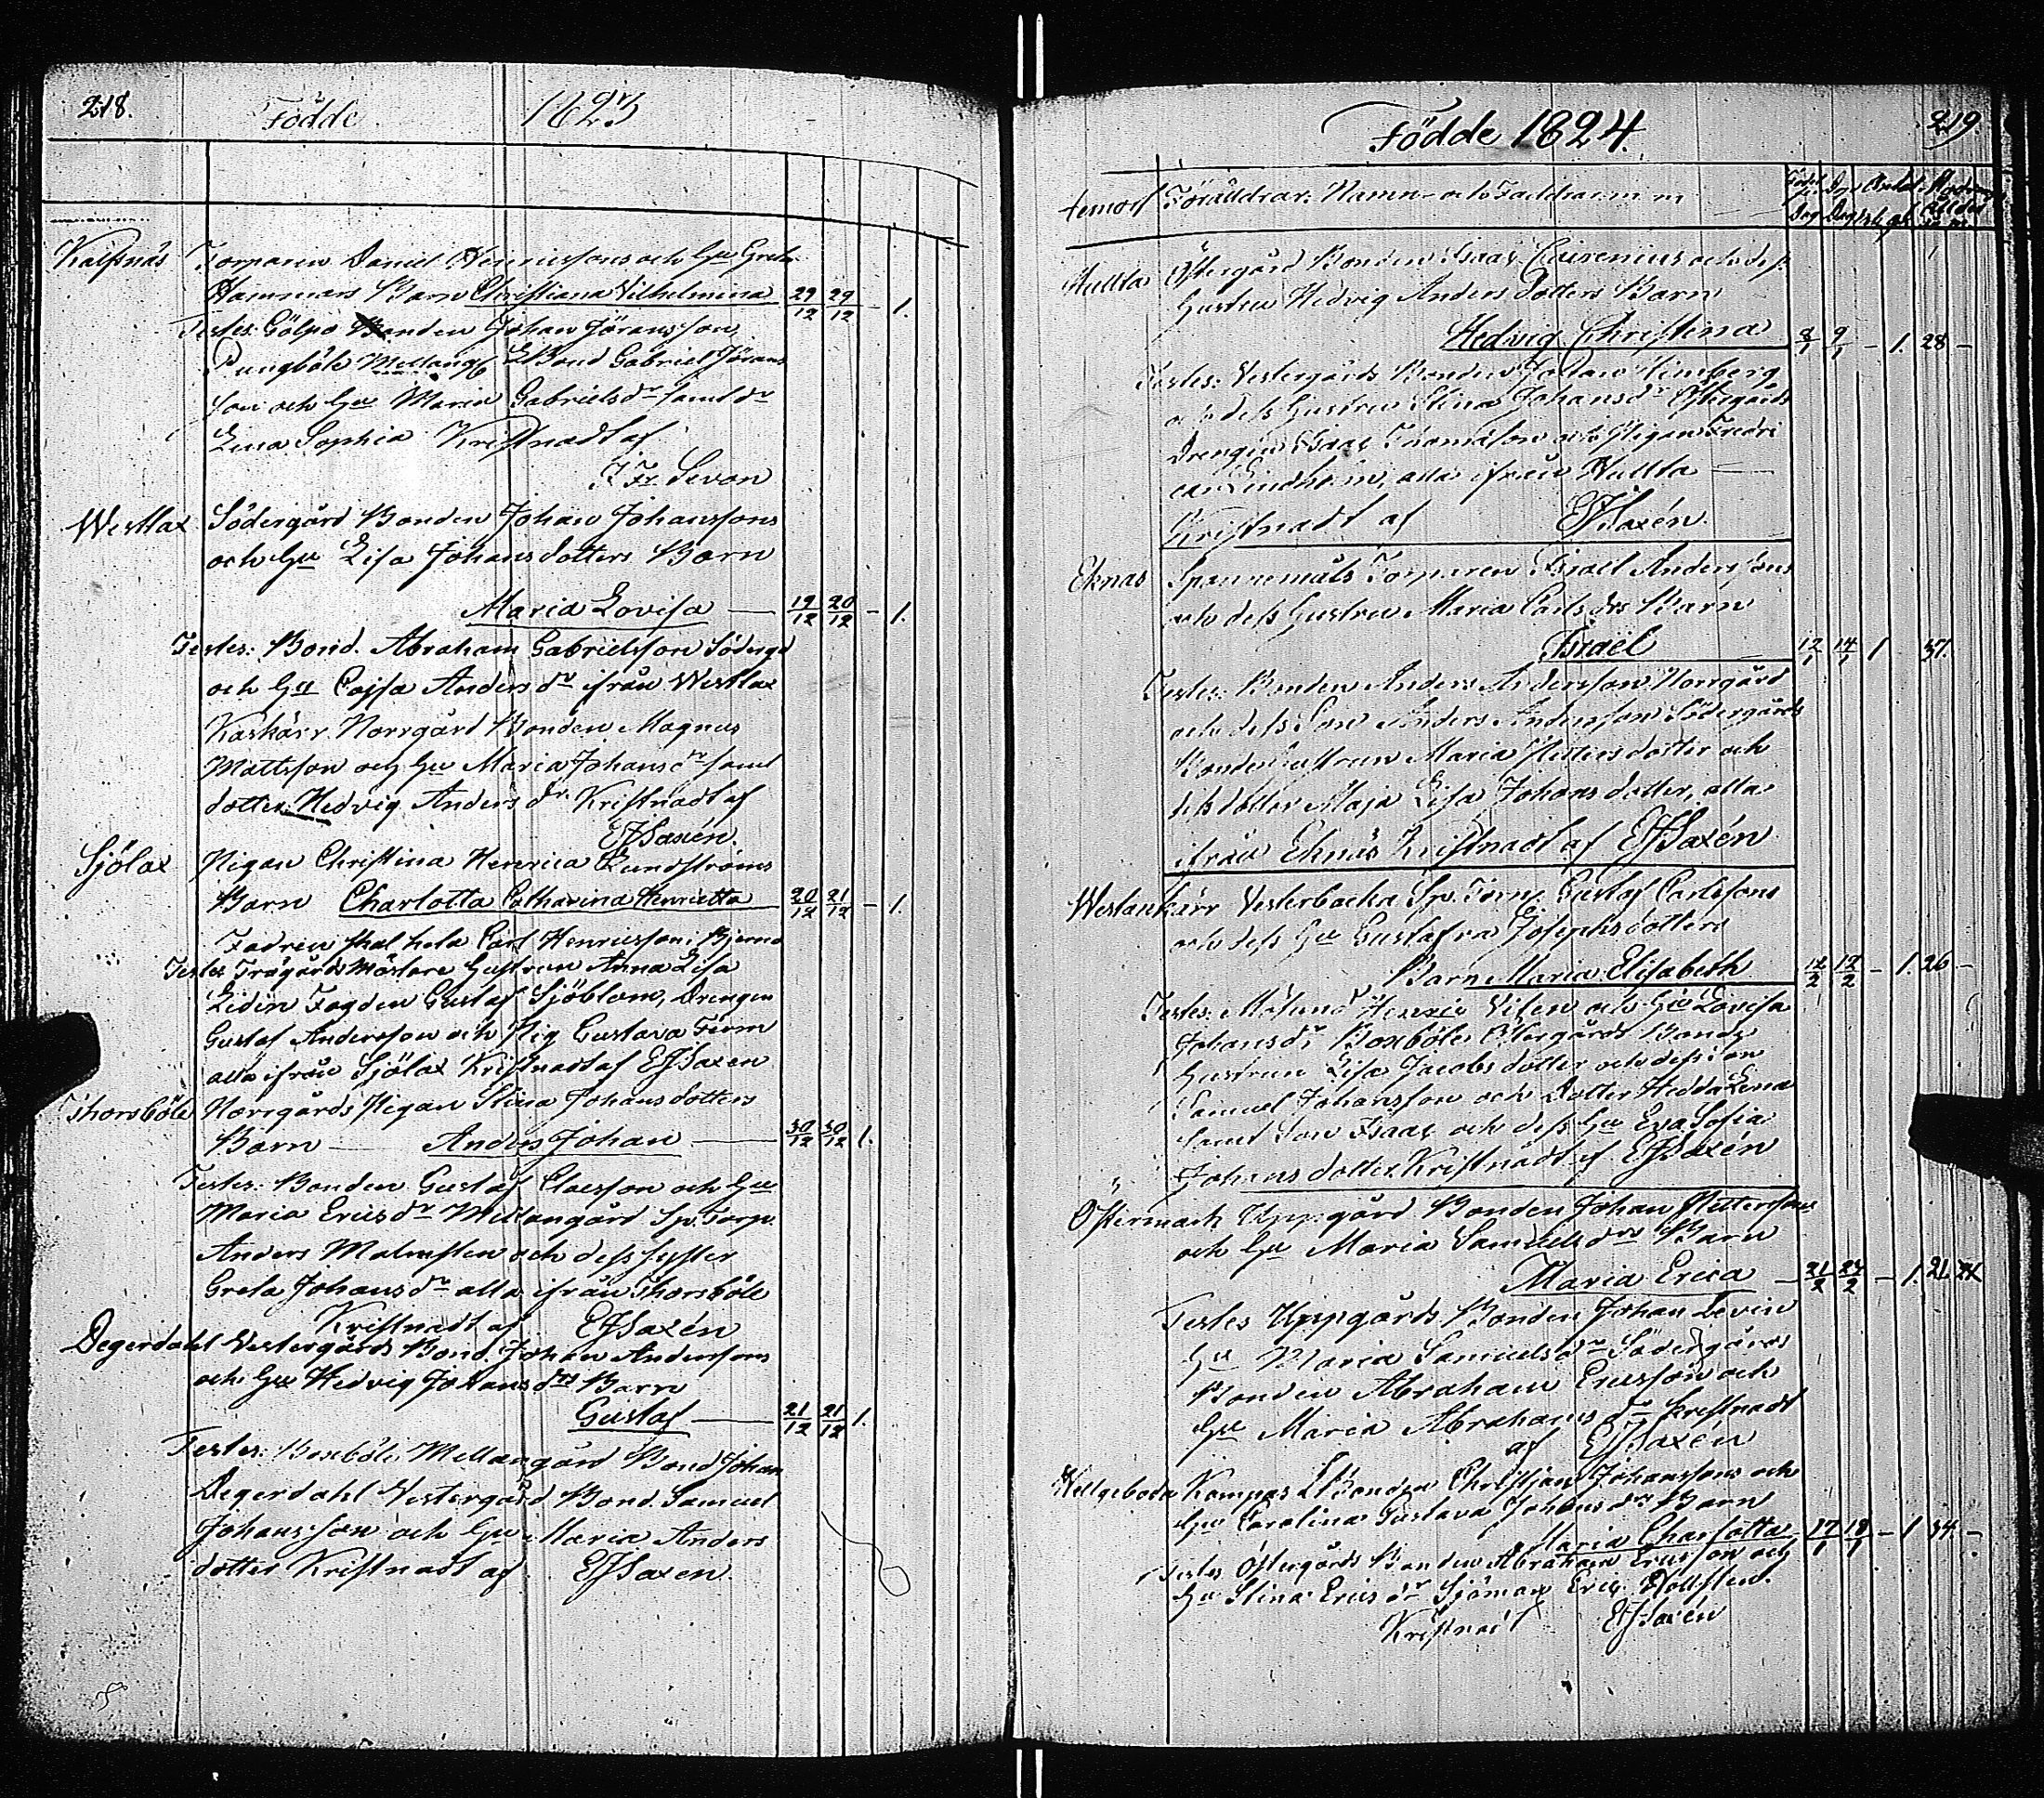 218. Födde 1823
Kalfsnäs Torparen Daniel Henricssons och Hu Greta
Hammars Barn Christiana Vilhelmina 29/12 29/12 - 1.
Testes: Gölpo Bonden Johan Göransson,
Pungböle Mellangå Bond Gabriel Görans
son och Hu Maria Gabrielsdr samt dr
Lena Sophia Kristnadt af
Sevon
Westlax Södergård Bonden Johan Johanssons
och Hu Lisa Johansdotters Barn
Maria Lovisa 19/12 20/12 - 1.
Testes: Bond. Abraham Gabrielsson Söderga
och Hu Cajsa Anders dr ifrån Westlax
Kärkärr Norrgård Bonden Magnus
Mattsson och Hu Maria Johans dr samt
dotter Hedvig Anders dr Kristnadt af
EJSaxén.
Sjölax Pigan Christina Henrica Lundströms
Barn Charlotta Catharina Henrietta 20/12 21/12 - 1.
Fadren skal heta Carl Henricsson i Bjerno
Testes Trägårds Mästare Hustrun Anna Lisa
Lidin Fogden Gustaf Sjöblom, Drengen
Gustaf Andersson och Pig Gustava Term
alla ifrån Sjölax Kristnadt af EJSaxen
Thorsböle Norrgårds Pigan Stina Johansdotters
Barn Anders Johan 30/12 30/12 1.
Testes: Bonden Gustaf Claesson och Hu
Maria Erics dr Mellangård Sp. Torp.
Anders Malmsten och dess syster
Greta Johans dr alla ifrån Thorsböle
Kristnadt af EJSaxén
Degerdahl Vestergårds Bond. Johan Anderssons
och Hu Hedvig Johans drs Barn
Gustaf 21/12 21/12 1.
Testes: Boxböle Mellangård Bond Johan
Degerdahl Vestergård Bond. Samuel
Johansson och Hu Maria Anders
dotter Kristnadt af EJSaxen.
Födde 1824. 219.
Föräldrar. Namn och Faddrar m m
Hullta Östergård Bonden Isaac och dess
Hustru Hedvig Anders Dotters Barn
Hedvig Christina 8/1 9/1 - 1. 28 -
Testes: Vestergårds Bonden Johan Limberg
och dess Hustru Stina Johansdr Östergårds
Drengen Isaac Thomasson och Pigan Fredri
ca Lindholm, alla ifrån Hullta
Kristnadt af EJSaxén.
Eknäs Spannemåls Torparen Israel Anderssons
och dess Hustru Maria Carls drs Barn
Israel 12/1 14/1 1 37.
Testes: Bonden Anders Andersson Norrgård
och dess Son Anders Andersson Södergårds
Bonde Hustrun Maria Pettersdotter och
dess dotter Maja Lisa Johansdotter, alla
ifrån Eknäs Kristnadt af EJSaxén
Westankärr Vesterbacka Sp. Torp. Gustaf Carlssons
och dess Hu Gustafva Josephsdotters
Barn Maria Elisabeth 12/2 12/2 - 1. 26 -
Testes: Henric Vilen och Hu Lovisa
Johans dr Boxböle Östergårds Bonde
Hustrun Lisa Jacobsdotter och dess son
Samuel Johansson och Dotter Hedda Lena
samt Son Isaac och dess Hu Eva Sofia
Johansdotter Kristnadt af EJSaxén
Östermark Uppgård Bonden Johan Petterssons
och Hu Maria Samuels drs Barn
Maria Erica 21/2 24/2 - 1. 21
Testes Uppgårds Bonden Johan Levin
Hu Maria Samuels dr Södergårds
Bonden Abraham Ericsson och
Hu Maria Abrahams dr Kristnadt
af EJSaxén
Helgeboda Kampas Bonden Christjan Johanssons och
Hu Carolina Gustava Johans drs Barn
Maria Charlotta 17/1 18/1 - 1. 34. -
Testes Östergårds Bonden Abraham Ericsson och
Hu Stina Erics dr Sjöman Eric Hollsten.
Kristnadt EJSaxén